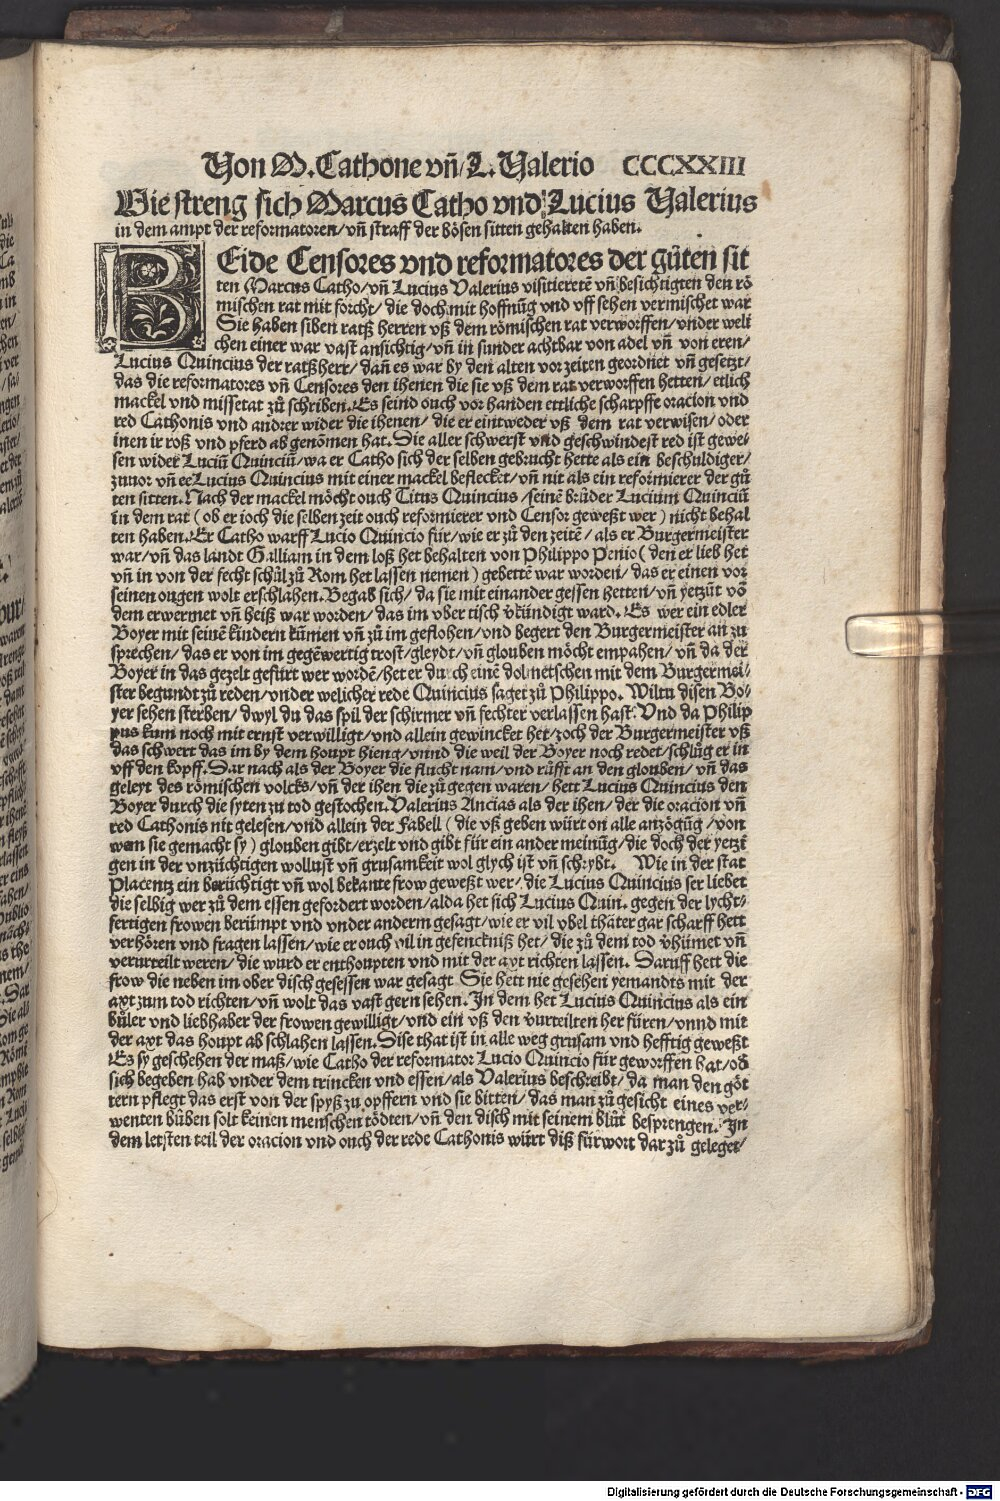 Von M. Cathone vñ/ L. Valerio CCCXXIII
Wie streng sich Marcus Catho vnd Lucius Valerius
in dem ampt der reformatoren/ vñ straff der bösen sitten gehalten haben.
BEide Censores vnd reformatores der gůten sit
ten Marcus Catho/ vñ Lucius Valerius visitieretē vñ besichtigten den rö
mischen rat mit forcht/ die doch mit hoffnūg vnd vff sehen vermischet war
Sie haben siben ratß herren vß dem römischen rat verworffen/ vnder weli
chen einer war vast ansichtig/ vñ in sunder achtbar von adel vñ von eren/
Lucius Quincius der ratßherr/ dañ es war by den alten vor zeiten geordnet vñ gesetzt/
das die reformatores vñ Censores den ihenen die sie vß dem rat verworffen hetten/ etlich
mackel vnd missetat zů schriben. Es seind ouch vor handen ettliche scharpffe oracion vnd
red Cathonis vnd andrer wider die ihenen/ die er eintweder vß dem rat verwisen/ oder
inen ir roß vnd pferd ab genōmen hat. Die aller schwerst vnd geschwindest red ist gewe/
sen wider Luciū Quinciū/ wa er Catho sich der selben gebrucht hette als ein beschuldiger/
zuuor vñ ee Lucius Quincius mit einer mackel beflecket/ vñ nit als ein reformierer der gů
ten sitten. Nach der mackel möcht ouch Titus Quincius/ seinē brůder Lucium Quinciū
in dem rat ( ob er ioch die selben zeit ouch reformierer vnd Censor geweßt wer ) nicht behal
ten haben. Er Catho warff Lucio Quincio für/ wie er zů den zeitē/ als er Burgermeister
war/ vñ das landt Galliam in dem loß het behalten von Philippo Penio ( den er lieb het
vñ in von der fecht schůl zů Rom het lassen nemen ) gebettē war worden/ das er einen vor
seinen ougen wolt erschlahen. Begab sich/ da sie mit einander gessen hetten/ vñ yetzūt vō
dem erwermet vñ heiß war worden/ das im vber tisch v̄kündigt ward. Es wer ein edler
Boyer mit seinē kindern kūmen vñ zů im geflohen/ vnd begert den Burgermeister an zu
sprechen/ das er von im gegēwertig trost/ gleydt/ vñ glouben möcht empahen/ vñ da der
Boyer in das gezelt gefürt wer wordē/ het er durch einē dolmetschen mit dem Burgermei/
ster begundt zů reden/ vnder welicher rede Quincius saget zů Philippo. Wiltu disen Bo/
yer sehen sterben/ dwyl du das spil der schirmer vñ fechter verlassen hast. Vnd da Philip
pus kum noch mit ernst verwilligt/ vnd allein gewincket het/ zoch der Burgermeister vß
das schwert das im by dem houpt hieng/ vnnd die weil der Boyer noch redet/ schlůg er in
vff den kopff. Dar nach als der Boyer die flucht nam/ vnd růfft an den glouben/ vñ das
geleyt des römischen volcks/ vñ der ihen die zů gegen waren/ hett Lucius Quincius den
Boyer durch die syten zu tod gestochen. Valerius Ancias als der ihen/ der die oracion vñ
red Cathonis nit gelesen/ vnd allein der Fabell ( die vß geben würt on alle anzögūg/ von
wem sie gemacht sy ) glouben gibt/ erzelt vnd gibt für ein ander meinūg/ die doch der yetzi
gen in der vnzüchtigen wollust vñ grusamkeit wol glych ist vñ schrybt. Wie in der stat
Placentz ein berüchtigt vñ wol bekante frow geweßt wer/ die Lucius Quincius ser liebet
die selbig wer zů dem essen gefordert worden/ alda het sich Lucius Quin. gegen der lycht/
fertigen frowen berümpt vnd vnder anderm gesagt/ wie er vil vbel thäter gar scharff hett
verhören vnd fragen lassen/ wie er ouch vil in gefencknß het/ die zů dem tod v̄thümet vñ
verurteilt weren/ die wurd er enthoupten vnd mit der axt richten lassen. Daruff hett die
frow die neben im ober disch gesessen war gesagt Sie hett nie gesehen yemandts mit der
axt zum tod richten/ vñ wolt das vast gern sehen. In dem het Lucius Quincius als ein
bůler vnd liebhaber der frowen gewilligt/ vnd ein vß den v̄urteilten her füren/ vnnd mit
der axt das houpt ab schlahen lassen. Dise that ist in alle weg grusam vnd hefftig geweßt
Es sy geschehen der maß/ wie Catho der reformator Lucio Quincio für geworffen hat/ oď
sich begeben hab vnder dem trincken vnd essen/ als Valerius beschreibt/ da man den göt
tern pflegt das erst von der spyß zu opffern vnd sie bitten/ das man zů gesicht eines ver/
wenten bůben solt keinen menschen tödten/ vñ den disch mit seinem blůt besprengen. In
dem letzten teil der oracion vnd ouch der rede Cathonis würt diß fürwort dar zů geleget/
Digitalisierung gefördert durch die Deutsche Forschungsgemeinschaft - DFG